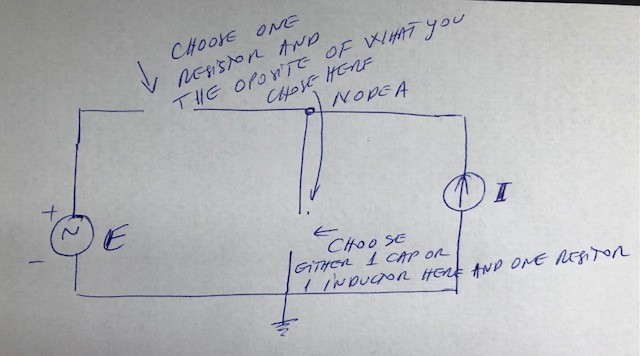 CHOOSE ONE
RESISTOR AND
THE OPOSITE OF WHAT YOU
CHOSE HERE
NODE A
+
E
-
I
CHOOSE
EITHER 1 CAP OR
1 INDUCTOR HERE AND ONE RESITOR